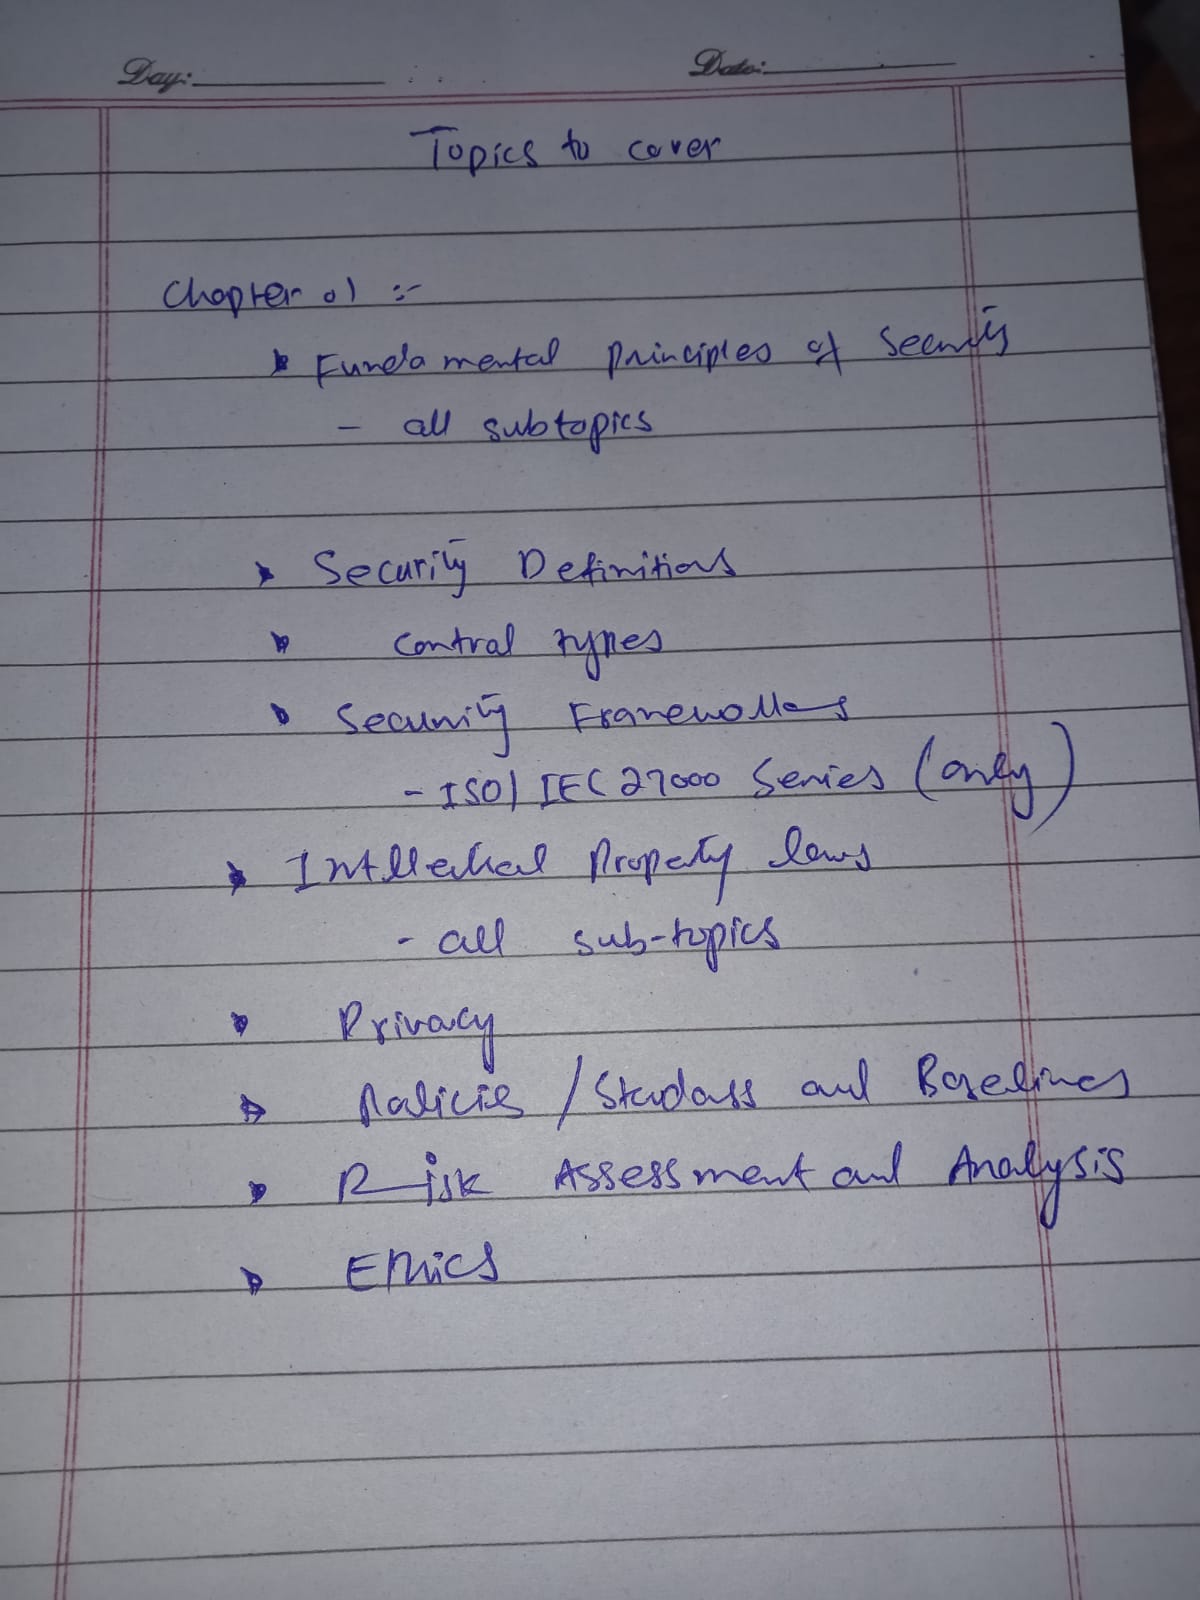 Day:
Date:
Topics to cover
Chapter 01 :-
Fundamental principles of Security
- all subtopics
Security Definitions
Control types
Security Frameworks
- ISO/IEC 27000 Series (only)
Intellectual Property laws
- all sub-topics
Privacy
Policies / Standards and Baselines
Risk Assessment and Analysis
Ethics